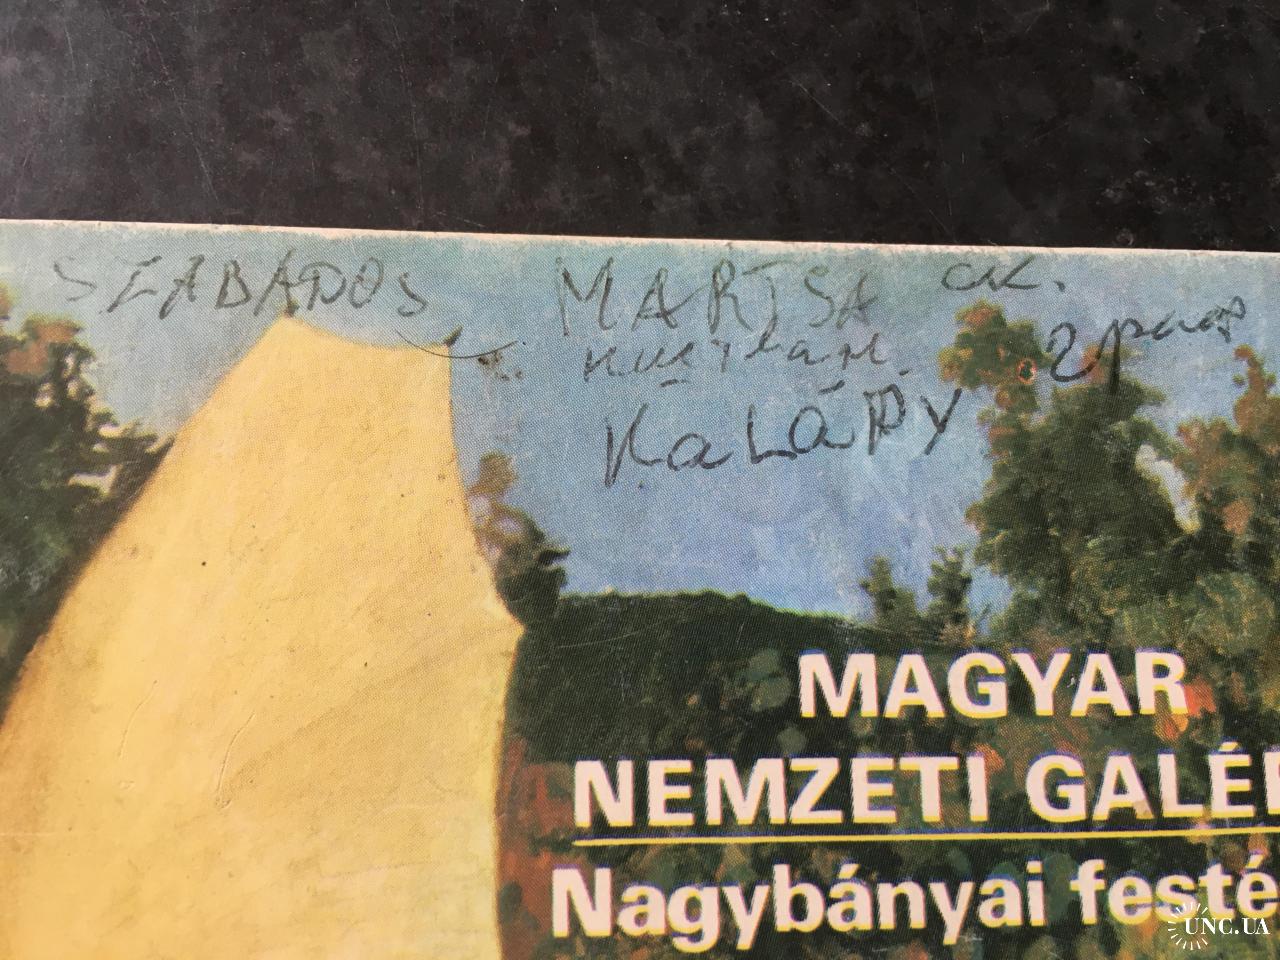 SZABADOS MARTSA ск.
2 раз
KaLáPy
MAGYAR
NEMZETI GALÉ
Nagybányai festé
UNC.UA